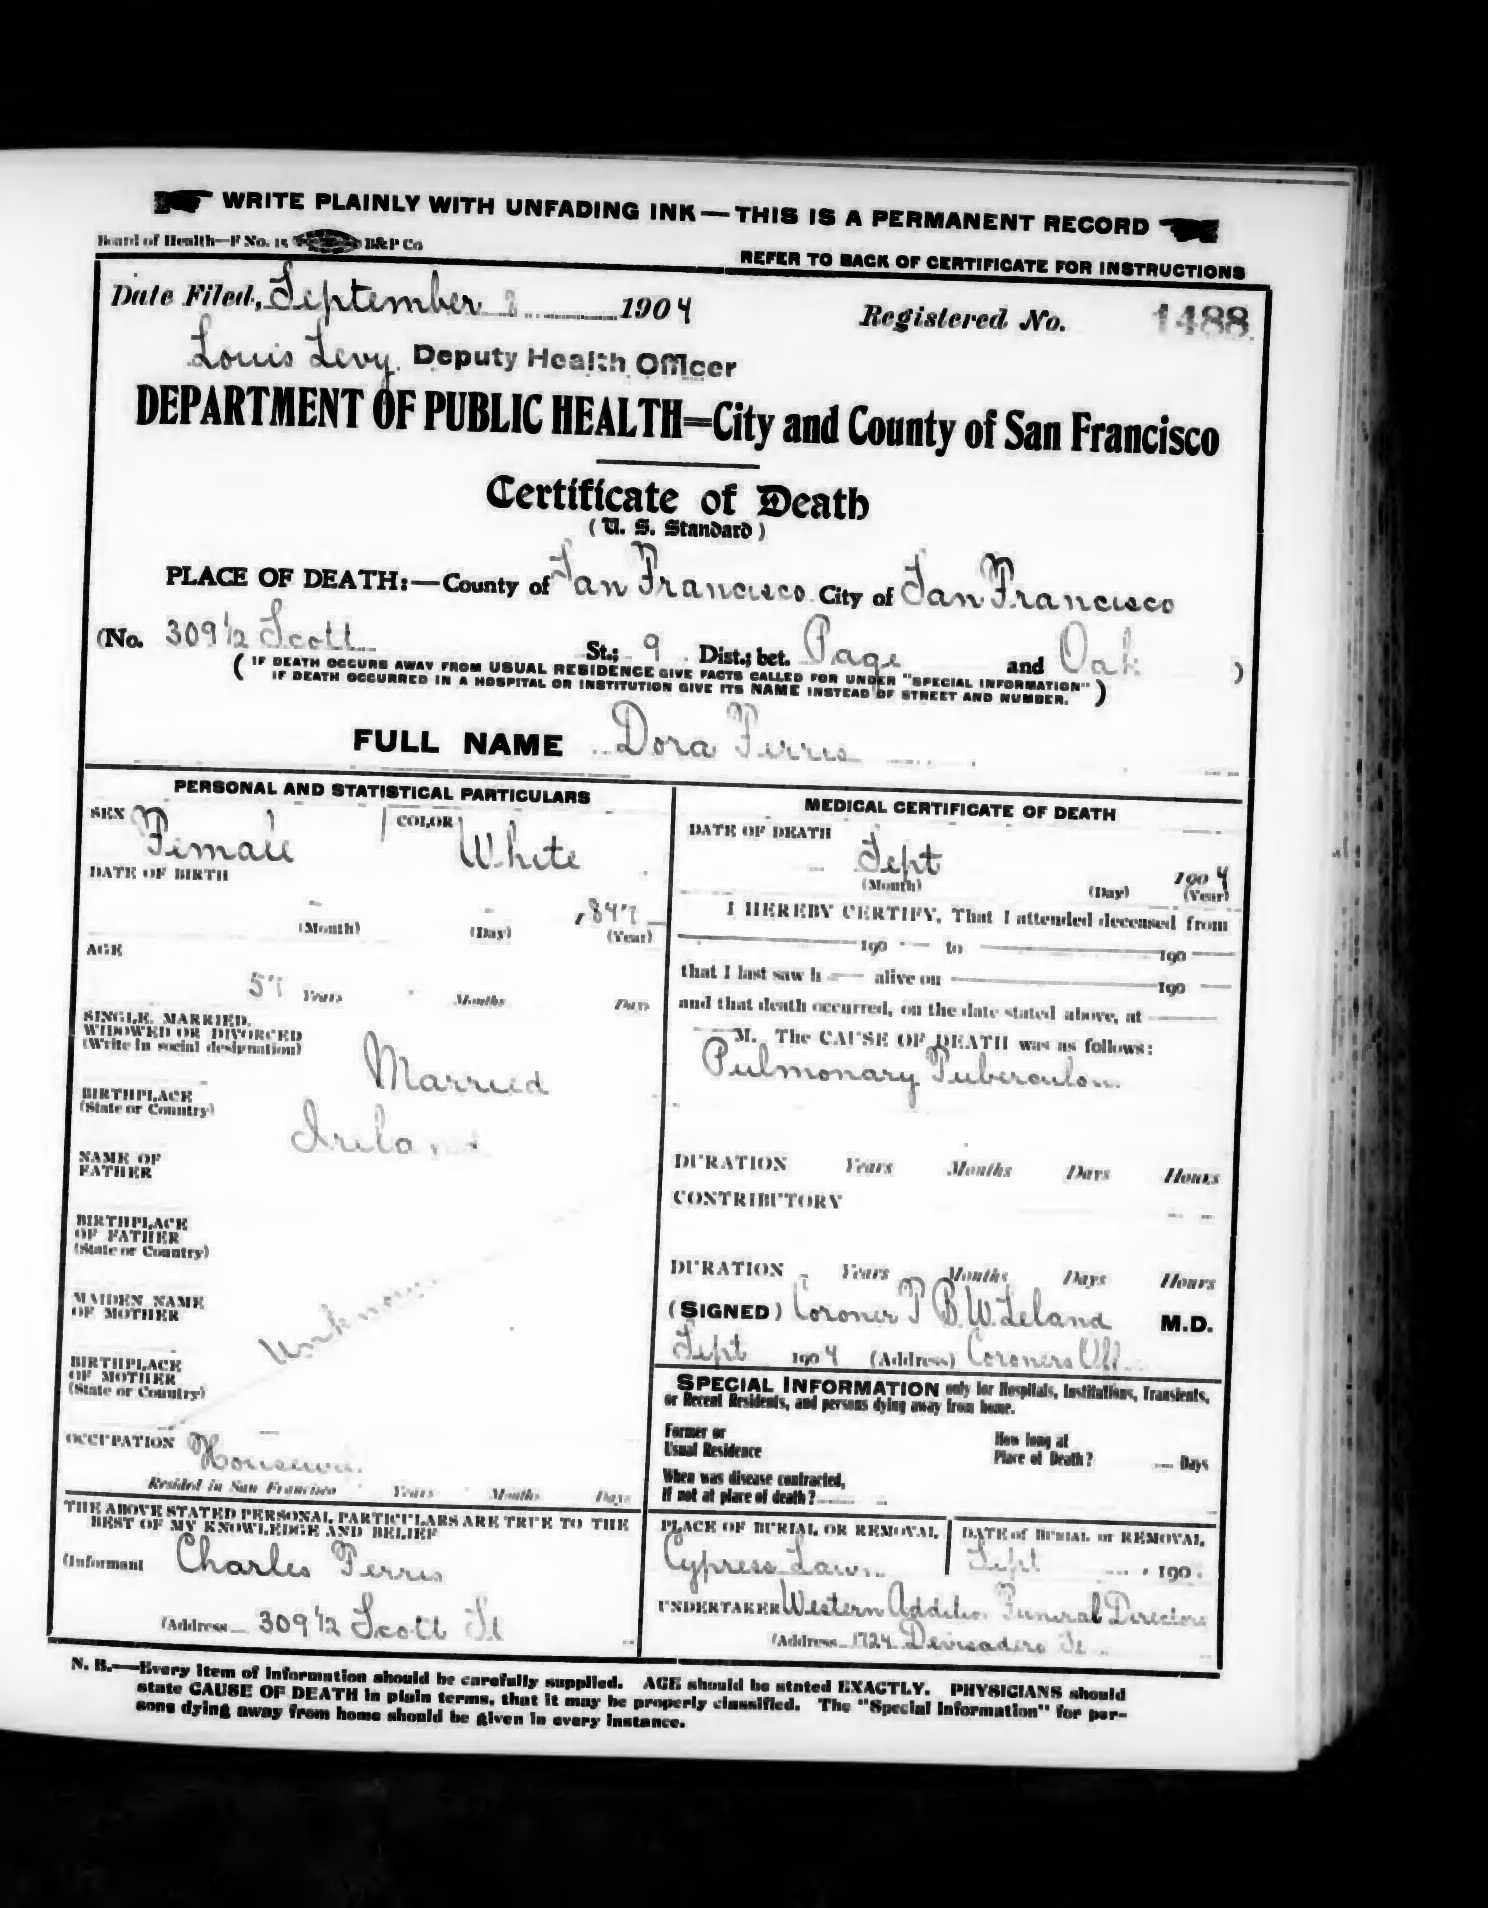 WRITE PLAINLY WITH UNFADING INK—THIS IS A PERMANENT RECORD
Board of Health—F No. 15 B&P Co
REFER TO BACK OF CERTIFICATE FOR INSTRUCTIONS
Date Filed, September 1904 Registered No. 1488
Louis Levy, Deputy Health Officer
DEPARTMENT OF PUBLIC HEALTH=City and County of San Francisco
Certificate of Death
(U. S. Standard)
PLACE OF DEATH:—County of San Francisco City of San Francisco
(No. 309½ Scott St.; 9 Dist.; bet. Page and Oak )
( IF DEATH OCCURS AWAY FROM USUAL RESIDENCE GIVE FACTS CALLED FOR UNDER "SPECIAL INFORMATION"
IF DEATH OCCURRED IN A HOSPITAL OR INSTITUTION GIVE ITS NAME INSTEAD OF STREET AND NUMBER. )
FULL NAME Dora Ferris
PERSONAL AND STATISTICAL PARTICULARS
SEX Female COLOR White
DATE OF BIRTH
1847
(Month) (Day) (Year)
AGE
57 Years Months Days
SINGLE, MARRIED,
WIDOWED OR DIVORCED
(Write in social designation) Married
BIRTHPLACE
(State or Country) Ireland
NAME OF
FATHER
BIRTHPLACE
OF FATHER
(State or Country)
MAIDEN NAME
OF MOTHER
Unknown
BIRTHPLACE
OF MOTHER
(State or Country)
OCCUPATION Housewife
Resided in San Francisco Years Months Days
THE ABOVE STATED PERSONAL PARTICULARS ARE TRUE TO THE
BEST OF MY KNOWLEDGE AND BELIEF
(Informant Charles Ferris
(Address 309½ Scott St
MEDICAL CERTIFICATE OF DEATH
DATE OF DEATH
Sept 1904
(Month) (Day) (Year)
I HEREBY CERTIFY, That I attended deceased from
190 to 190
that I last saw h alive on 190
and that death occurred, on the date stated above, at
M. The CAUSE OF DEATH was as follows:
Pulmonary Tuberculos
DURATION Years Months Days Hours
CONTRIBUTORY
DURATION Years Months Days Hours
(SIGNED) Coroner T B. W. Leland M.D.
Sept 1904 (Address) Coroners Off
SPECIAL INFORMATION only for Hospitals, Institutions, Transients,
or Recent Residents, and persons dying away from home.
Former or
Usual Residence
How long at
Place of Death? Days
When was disease contracted,
If not at place of death?
PLACE OF BURIAL OR REMOVAL
Cypress Lawn
DATE of BURIAL or REMOVAL
Sept 190
UNDERTAKER Western Addition Funeral Directors
(Address 1724 Devisadero St
N. B.—Every item of information should be carefully supplied. AGE should be stated EXACTLY. PHYSICIANS should
state CAUSE OF DEATH in plain terms, that it may be properly classified. The "Special Information" for per-
sons dying away from home should be given in every instance.